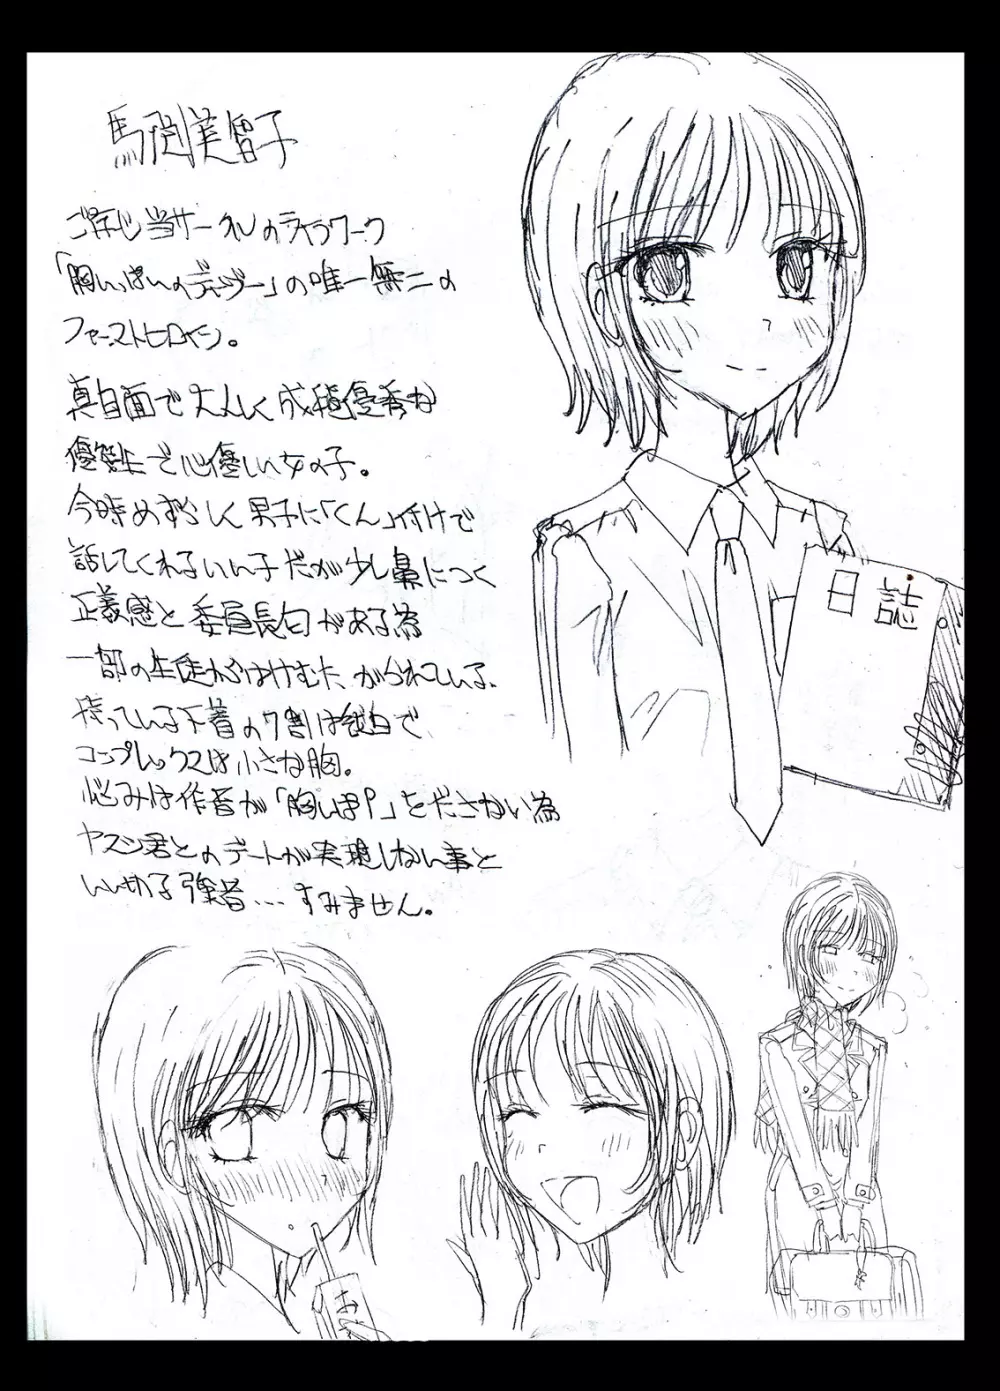 馬渕美智子
ご存じ当サークルのライフワーク
「胸いっぱいのディザー」の唯一無二の
ファーストヒロイン。
真白面で大人しく成績優秀な
優等生で心優しい女の子。
今時めずらしく男子に「くん」付けで
話してくれるいい子だが少し鼻につく
正義感と委員長臼がある為
一部の生徒からはけむたがられている、
持っている下着の7割は純白で
コンプレックスは小さな胸。
悩みは作者が「胸いぱ」をださない為
ヤスシ君とのデートが実現しない事と
いい切る強者...すみません。
日誌
お